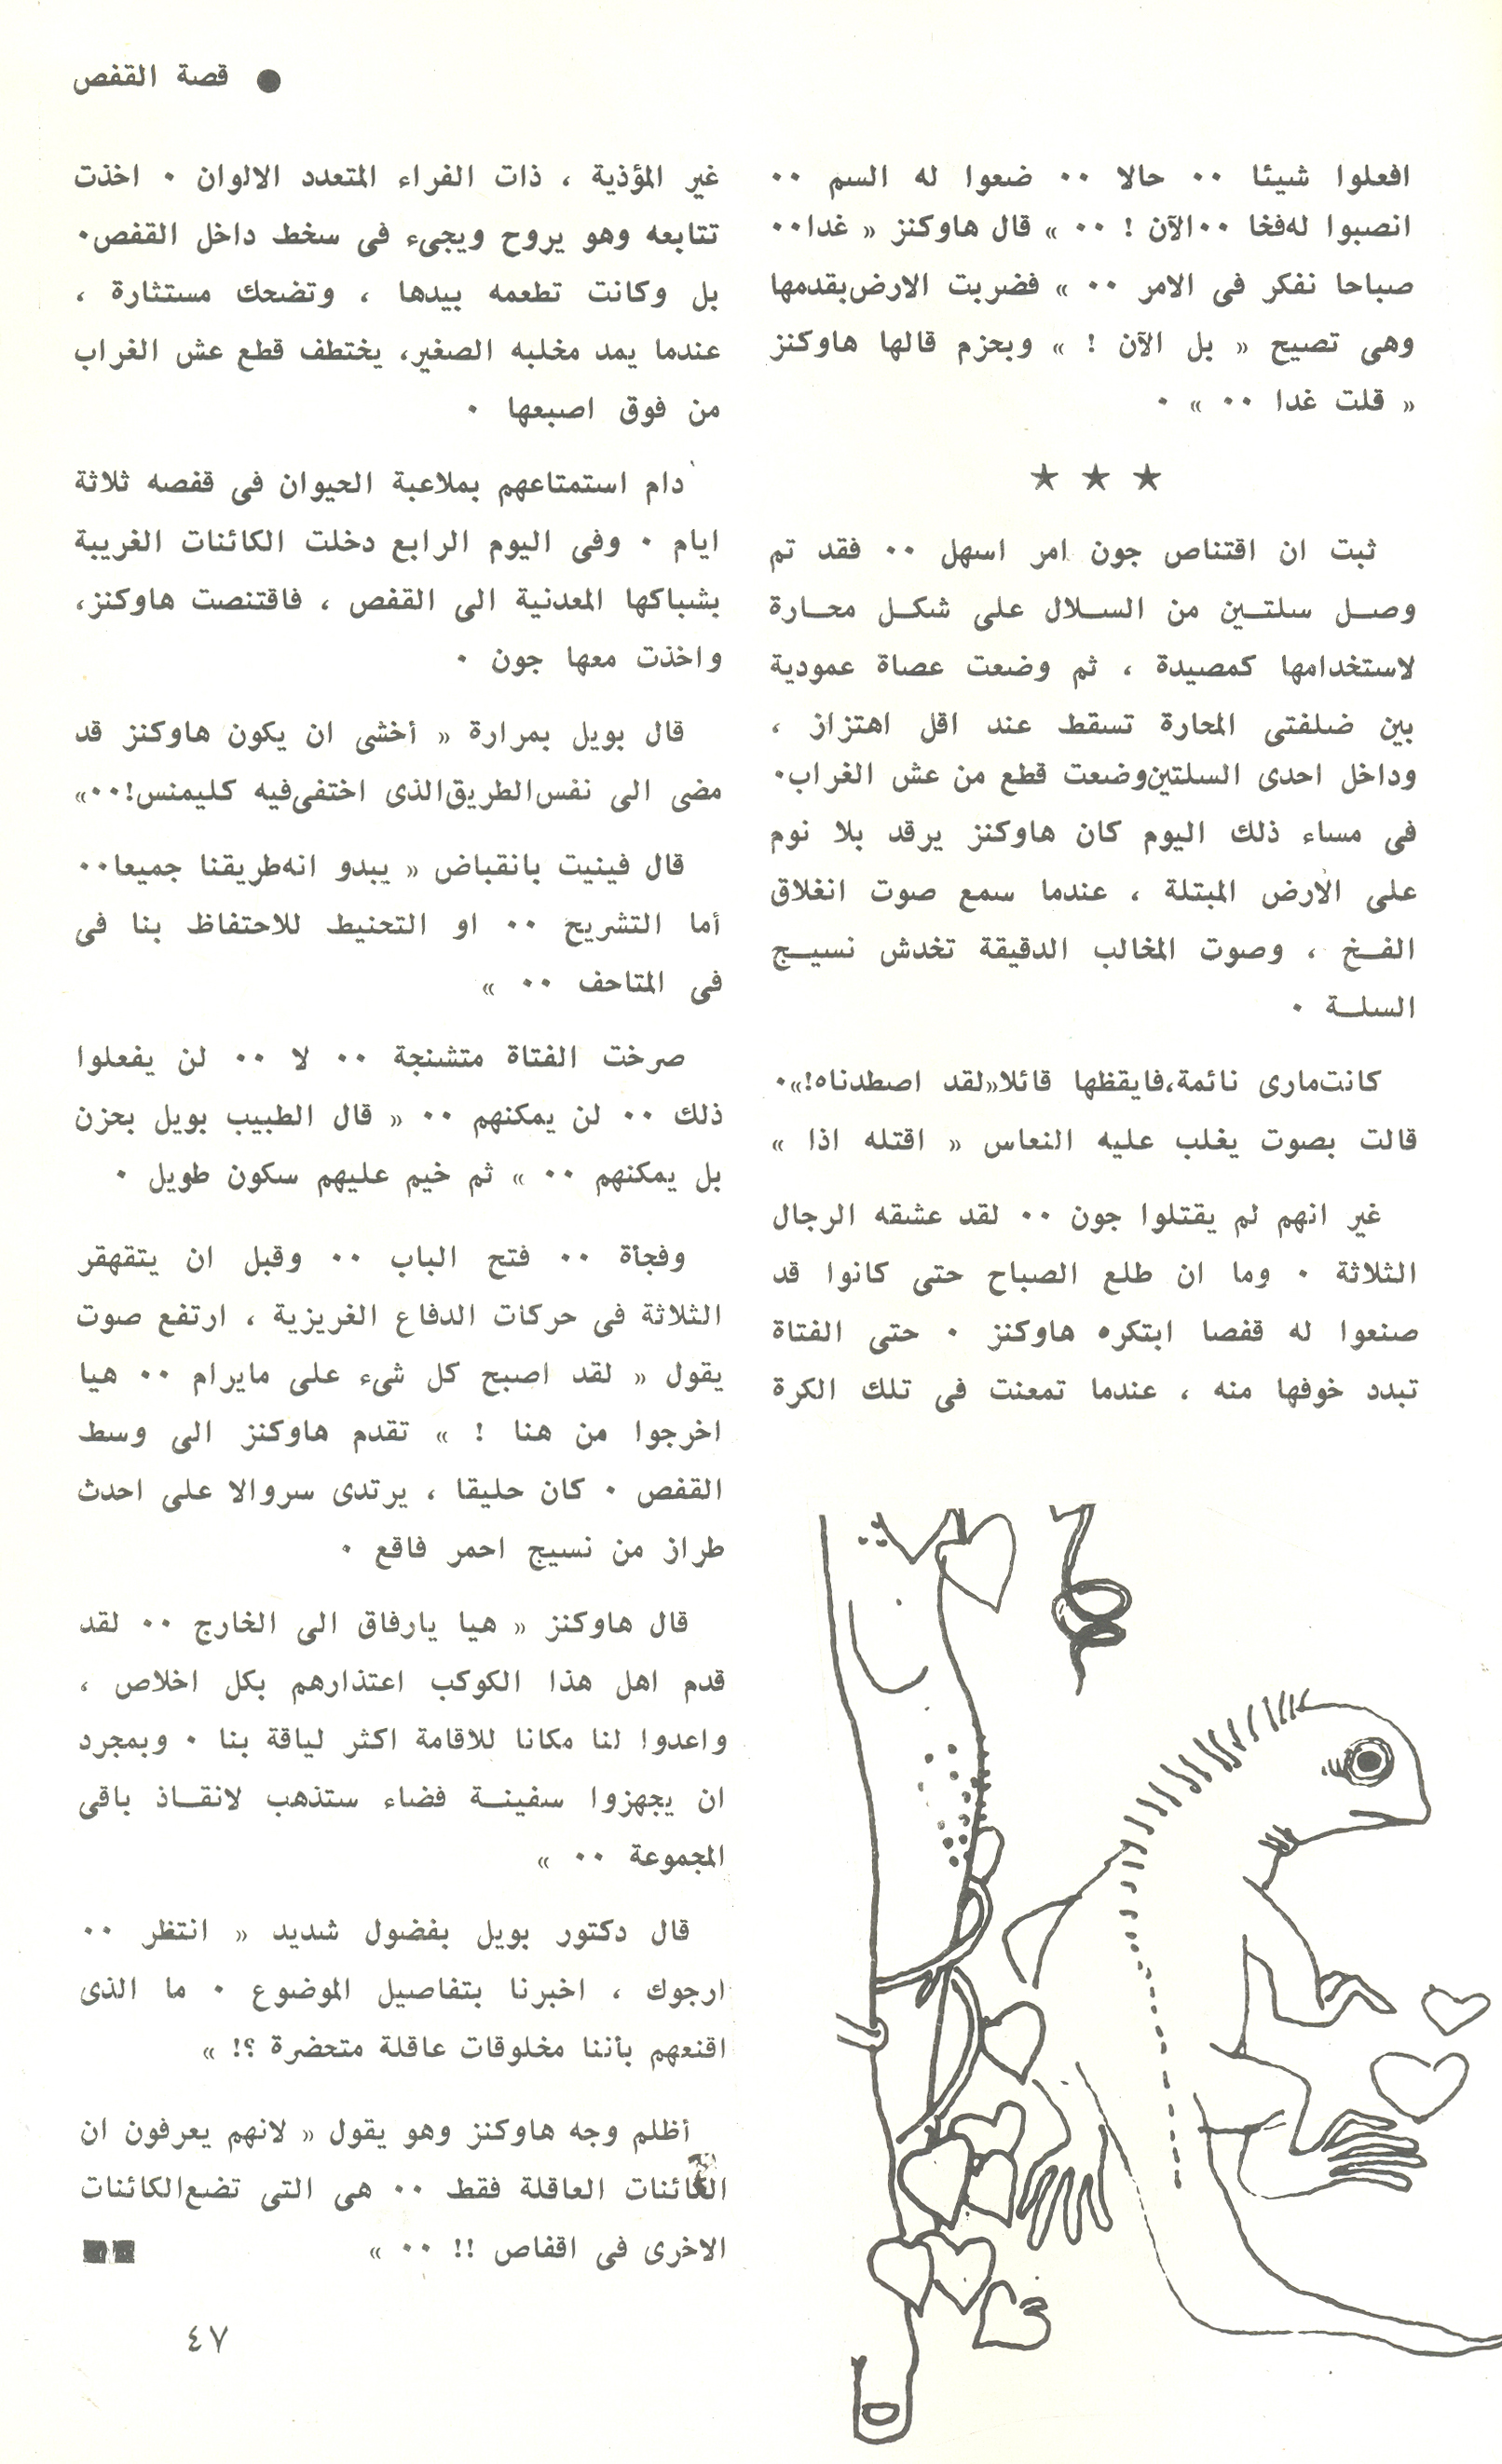 ● قصة القفص
افعلوا شيئا ٠٠ حالا ٠٠ ضعوا له السم ٠٠
انصبوا له فخا ٠٠ الآن ! ٠٠ » قال هاوكنز « غدا ٠٠
صباحا نفكر فى الامر ٠٠ » فضربت الارض بقدمها
وهى تصيح « بل الآن ! » وبحزم قالها هاوكنز
« قلت غدا ٠٠ » ٠
★ ★ ★
ثبت ان اقتناص جون امر اسهل ٠٠ فقد تم
وصل سلتين من السلال على شكل محارة
لاستخدامها كمصيدة ، ثم وضعت عصاة عمودية
بين ضلفتى المحارة تسقط عند اقل اهتزاز ،
وداخل احدى السلتين وضعت قطع من عش الغراب ٠
فى مساء ذلك اليوم كان هاوكنز يرقد بلا نوم
على الأرض المبتلة ، عندما سمع صوت انغلاق
الفخ ، وصوت المخالب الدقيقة تخدش نسيج
السلة ٠
كانت مارى نائمة ، فايقظها قائلا « لقد اصطدناه ! » ٠
قالت بصوت يغلب عليه النعاس « اقتله اذا »
غير انهم لم يقتلوا جون ٠٠ لقد عشقه الرجال
الثلاثة ٠ وما ان طلع الصباح حتى كانوا قد
صنعوا له قفصا ابتكره هاوكنز ٠ حتى الفتاة
تبدد خوفها منه ، عندما تمعنت فى تلك الكرة
غير المؤذية ، ذات الفراء المتعدد الالوان ٠ اخذت
تتابعه وهو يروح ويجىء فى سخط داخل القفص ٠
بل وكانت تطعمه بيدها ، وتضحك مستثارة ،
عندما يمد مخلبه الصغير ، يختطف قطع عش الغراب
من فوق اصبعها ٠
دام استمتاعهم بملاعبة الحيوان فى قفصه ثلاثة
ايام ٠ وفى اليوم الرابع دخلت الكائنات الغريبة
بشباكها المعدنية الى القفص ، فاقتنصت هاوكنز ،
واخذت معها جون ٠
قال بويل بمرارة « أخشى ان يكون هاوكنز قد
مضى الى نفس الطريق الذى اختفى فيه كليمنس ! ٠٠ »
قال فينيت بانقباض « يبدو انه طريقنا جميعا ٠٠
أما التشريح ٠٠ او التحنيط للاحتفاظ بنا فى
فى المتاحف ٠٠ »
صرخت الفتاة متشنجة ٠٠ لا ٠٠ لن يفعلوا
ذلك ٠٠ لن يمكنهم ٠٠ « قال الطبيب بويل بحزن
بل يمكنهم ٠٠ » ثم خيم عليهم سكون طويل ٠
وفجأة ٠٠ فتح الباب ٠٠ وقبل ان يتقهقر
الثلاثة فى حركات الدفاع الغريزية ، ارتفع صوت
يقول « لقد اصبح كل شىء على مايرام ٠٠ هيا
اخرجوا من هنا ! » تقدم هاوكنز الى وسط
القفص ٠ كان حليقا ، يرتدى سروالا على احدث
طراز من نسيج احمر فاقع ٠
قال هاوكنز « هيا يارفاق الى الخارج ٠٠ لقد
قدم اهل هذا الكوكب اعتذارهم بكل اخلاص ،
واعدوا لنا مكانا للاقامة اكثر لياقة بنا ٠ وبمجرد
ان يجهزوا سفينة فضاء ستذهب لانقاذ باقى
المجموعة ٠٠ »
قال دكتور بويل بفضول شديد « انتظر ٠٠
ارجوك ، اخبرنا بتفاصيل الموضوع ٠ ما الذى
اقنعهم بأننا مخلوقات عاقلة متحضرة ؟! »
أظلم وجه هاوكنز وهو يقول « لانهم يعرفون ان
الكائنات العاقلة فقط ٠٠ هى التى تضع الكائنات
الاخرى فى اقفاص !! ٠٠ »
٤٧